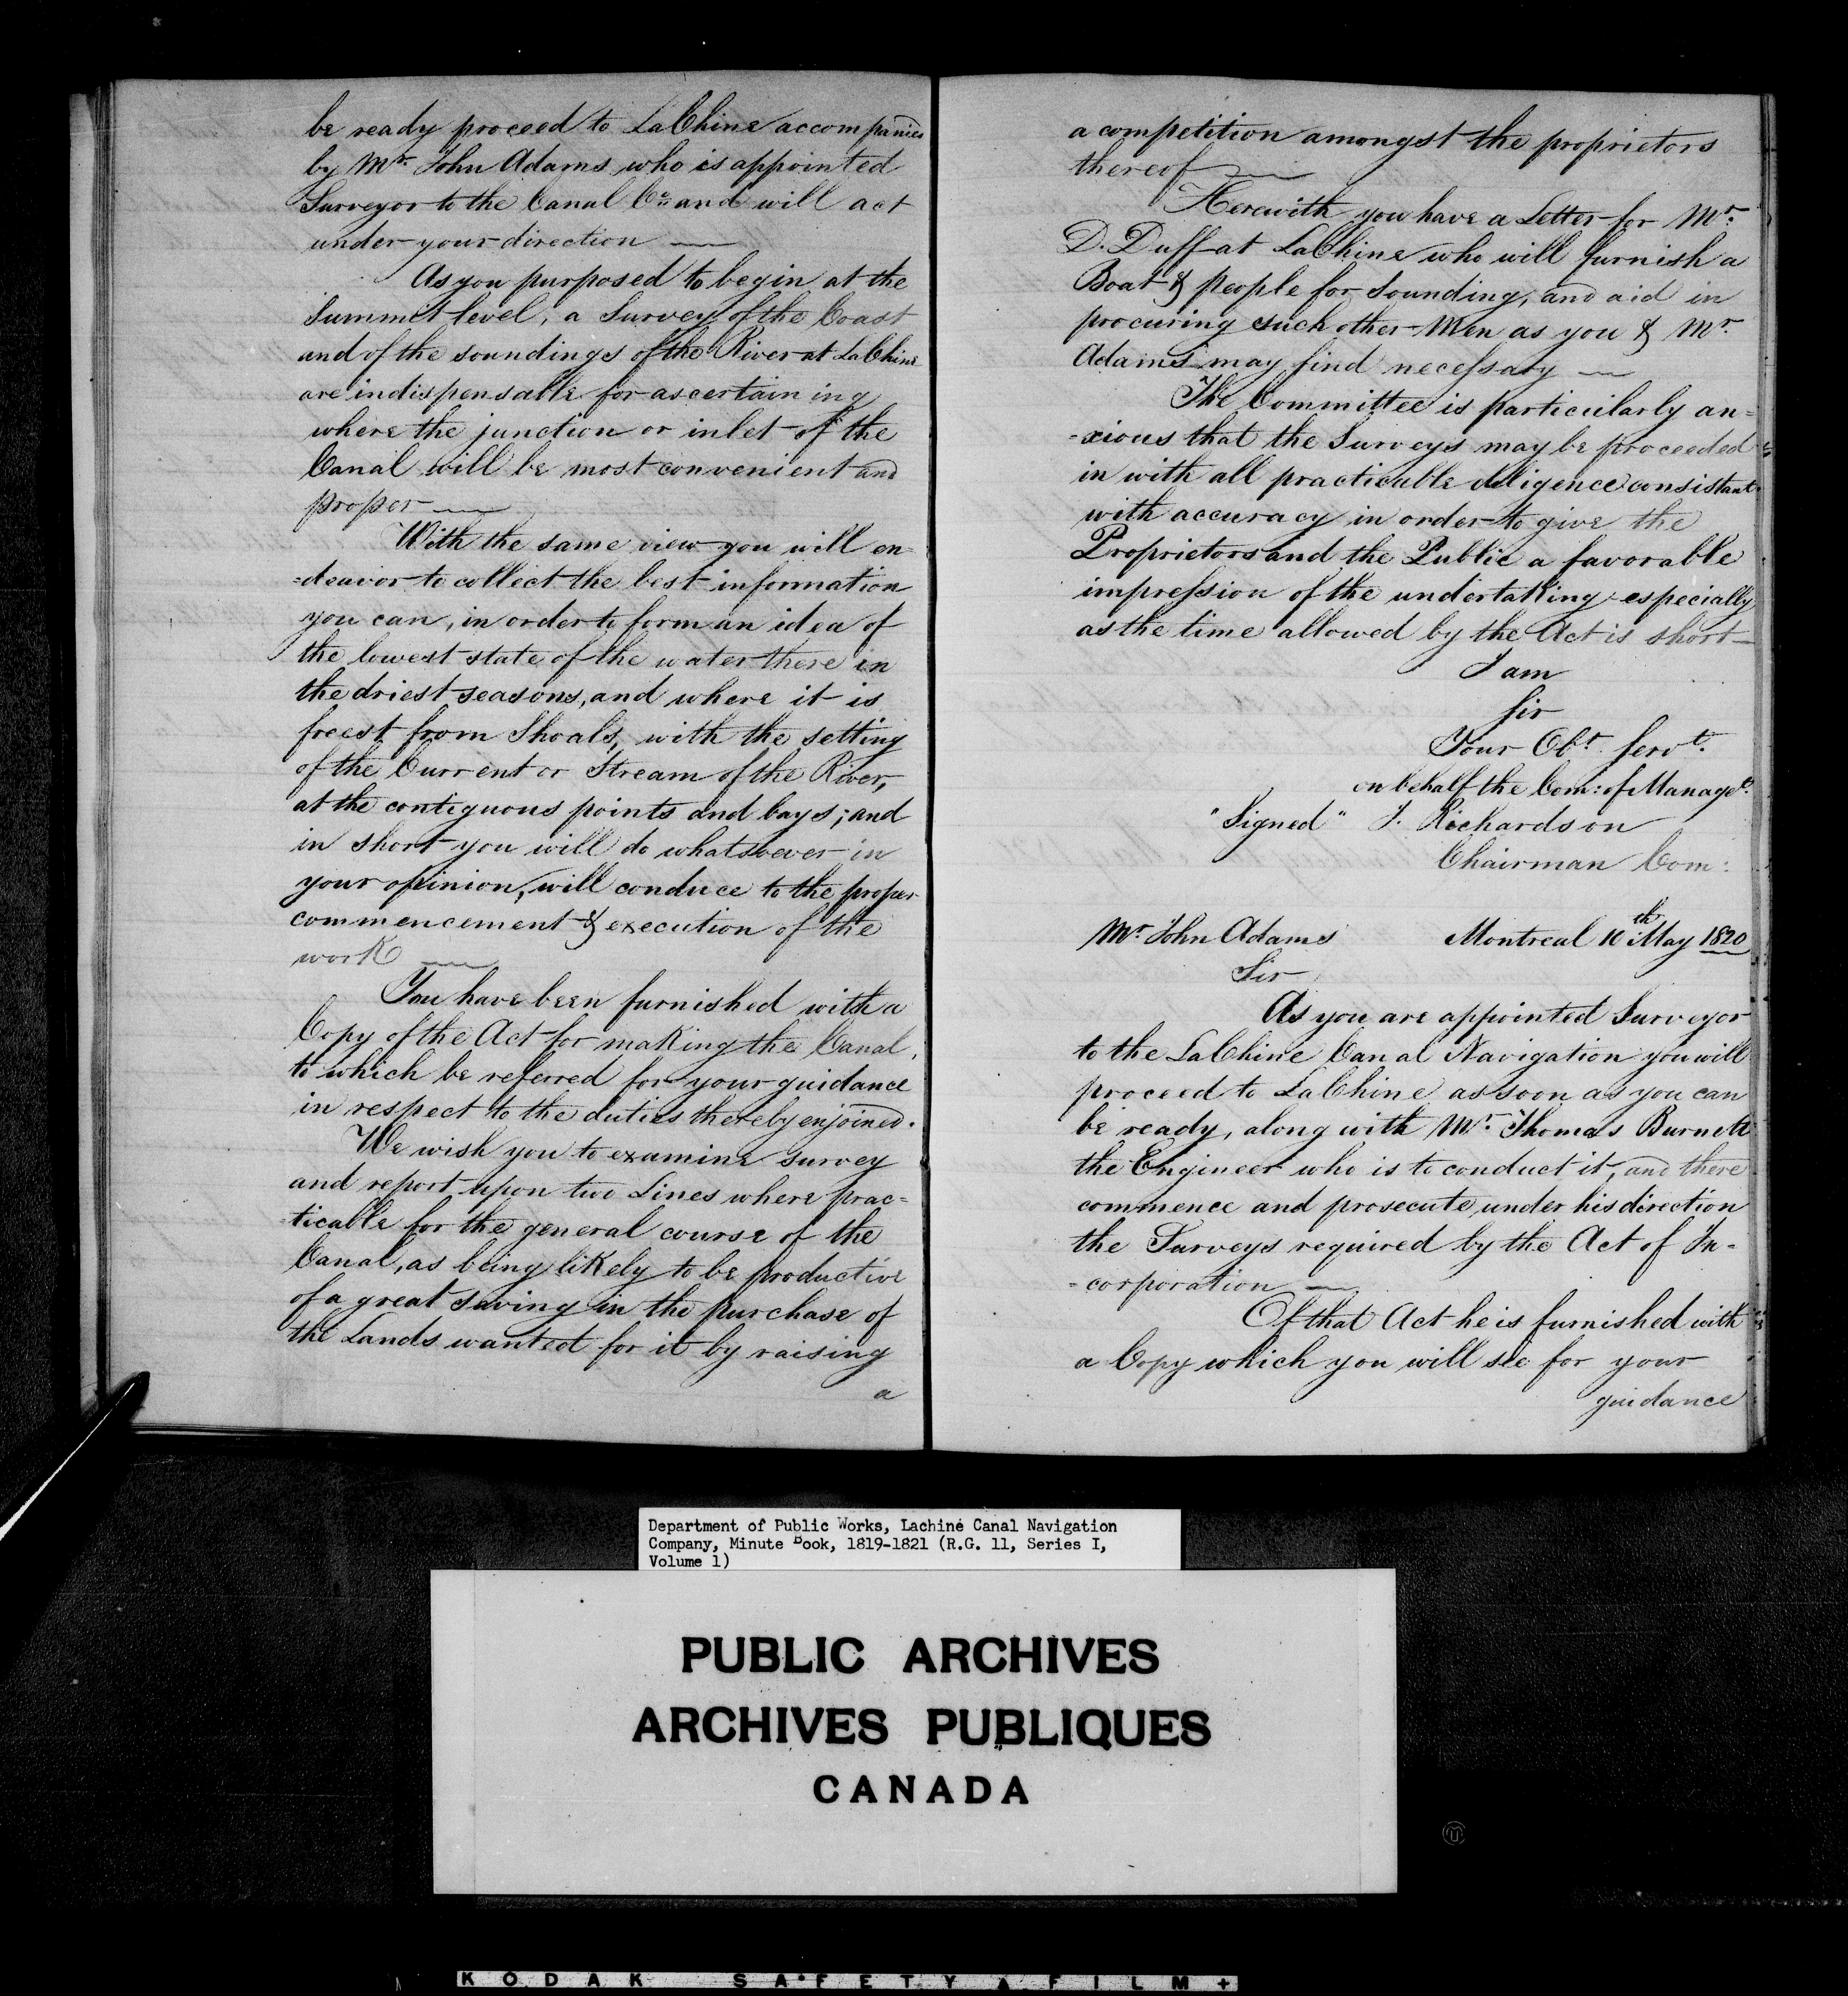 be ready proceed to LaChine accompanied
by Mr. John Adams who is appointed
Surveyor to the Canal Co. and will act
under your direction —
As you purposed to begin at the
Summit level, a Survey of the Coast
and of the soundings of the River at LaChine
are indispensable for ascertaining
where the junction or inlet of the
Canal will be most convenient and
proper —
With the same view you will en=
=deavor to collect the best information
you can, in order to form an idea of
the lowest state of the water there in
the driest seasons, and where it is
freest from Shoals, with the setting
of the Current or Stream of the River,
at the contiguous points and bays; and
in short you will do whatsoever in
your opinion, will conduce to the proper
commencement & execution of the
work —
You have been furnished with a
Copy of the Act for making the Canal,
to which be referred for your guidance
in respect to the duties thereby enjoined.
We wish you to examine survey
and report upon two Lines where prac=
ticable for the general course of the
Canal, as being likely to be productive
of a great saving in the purchase of
the Lands wanted for it by raising
a
a competition amongst the proprietors
thereof —
Herewith you have a Letter for Mr.
D. Duff at LaChine who will furnish a
Boat & people for Sounding, and aid in
procuring such other Men as you & Mr.
Adams may find necessary —
The Committee is particularly an=
=xious that the Surveys may be proceeded
in with all practicable diligence consistant
with accuracy in order to give the
Proprietors and the Public a favorable
impression of the undertaking especially
as the time allowed by the Act is short —
I am
Sir
Your Obt. Servt.
on behalf the Com: of Managet.
"Signed" J. Richardson
Chairman Com:
Mr. John Adams Montreal 10th May 1820
Sir
As you are appointed Surveyor
to the LaChine Canal Navigation you will
proceed to LaChine as soon as you can
be ready, along with Mr. Thomas Burnett
the Engineer who is to conduct it, and there
commence and prosecute, under his direction
the Surveys required by the Act of In=
=corporation —
Of that Act he is furnished with
a Copy which you will see for your
guidance
Department of Public Works, Lachine Canal Navigation
Company, Minute Book, 1819-1821 (R.G. 11, Series I,
Volume 1)
PUBLIC ARCHIVES
ARCHIVES PUBLIQUES
CANADA
KODAK SAFETY FILM